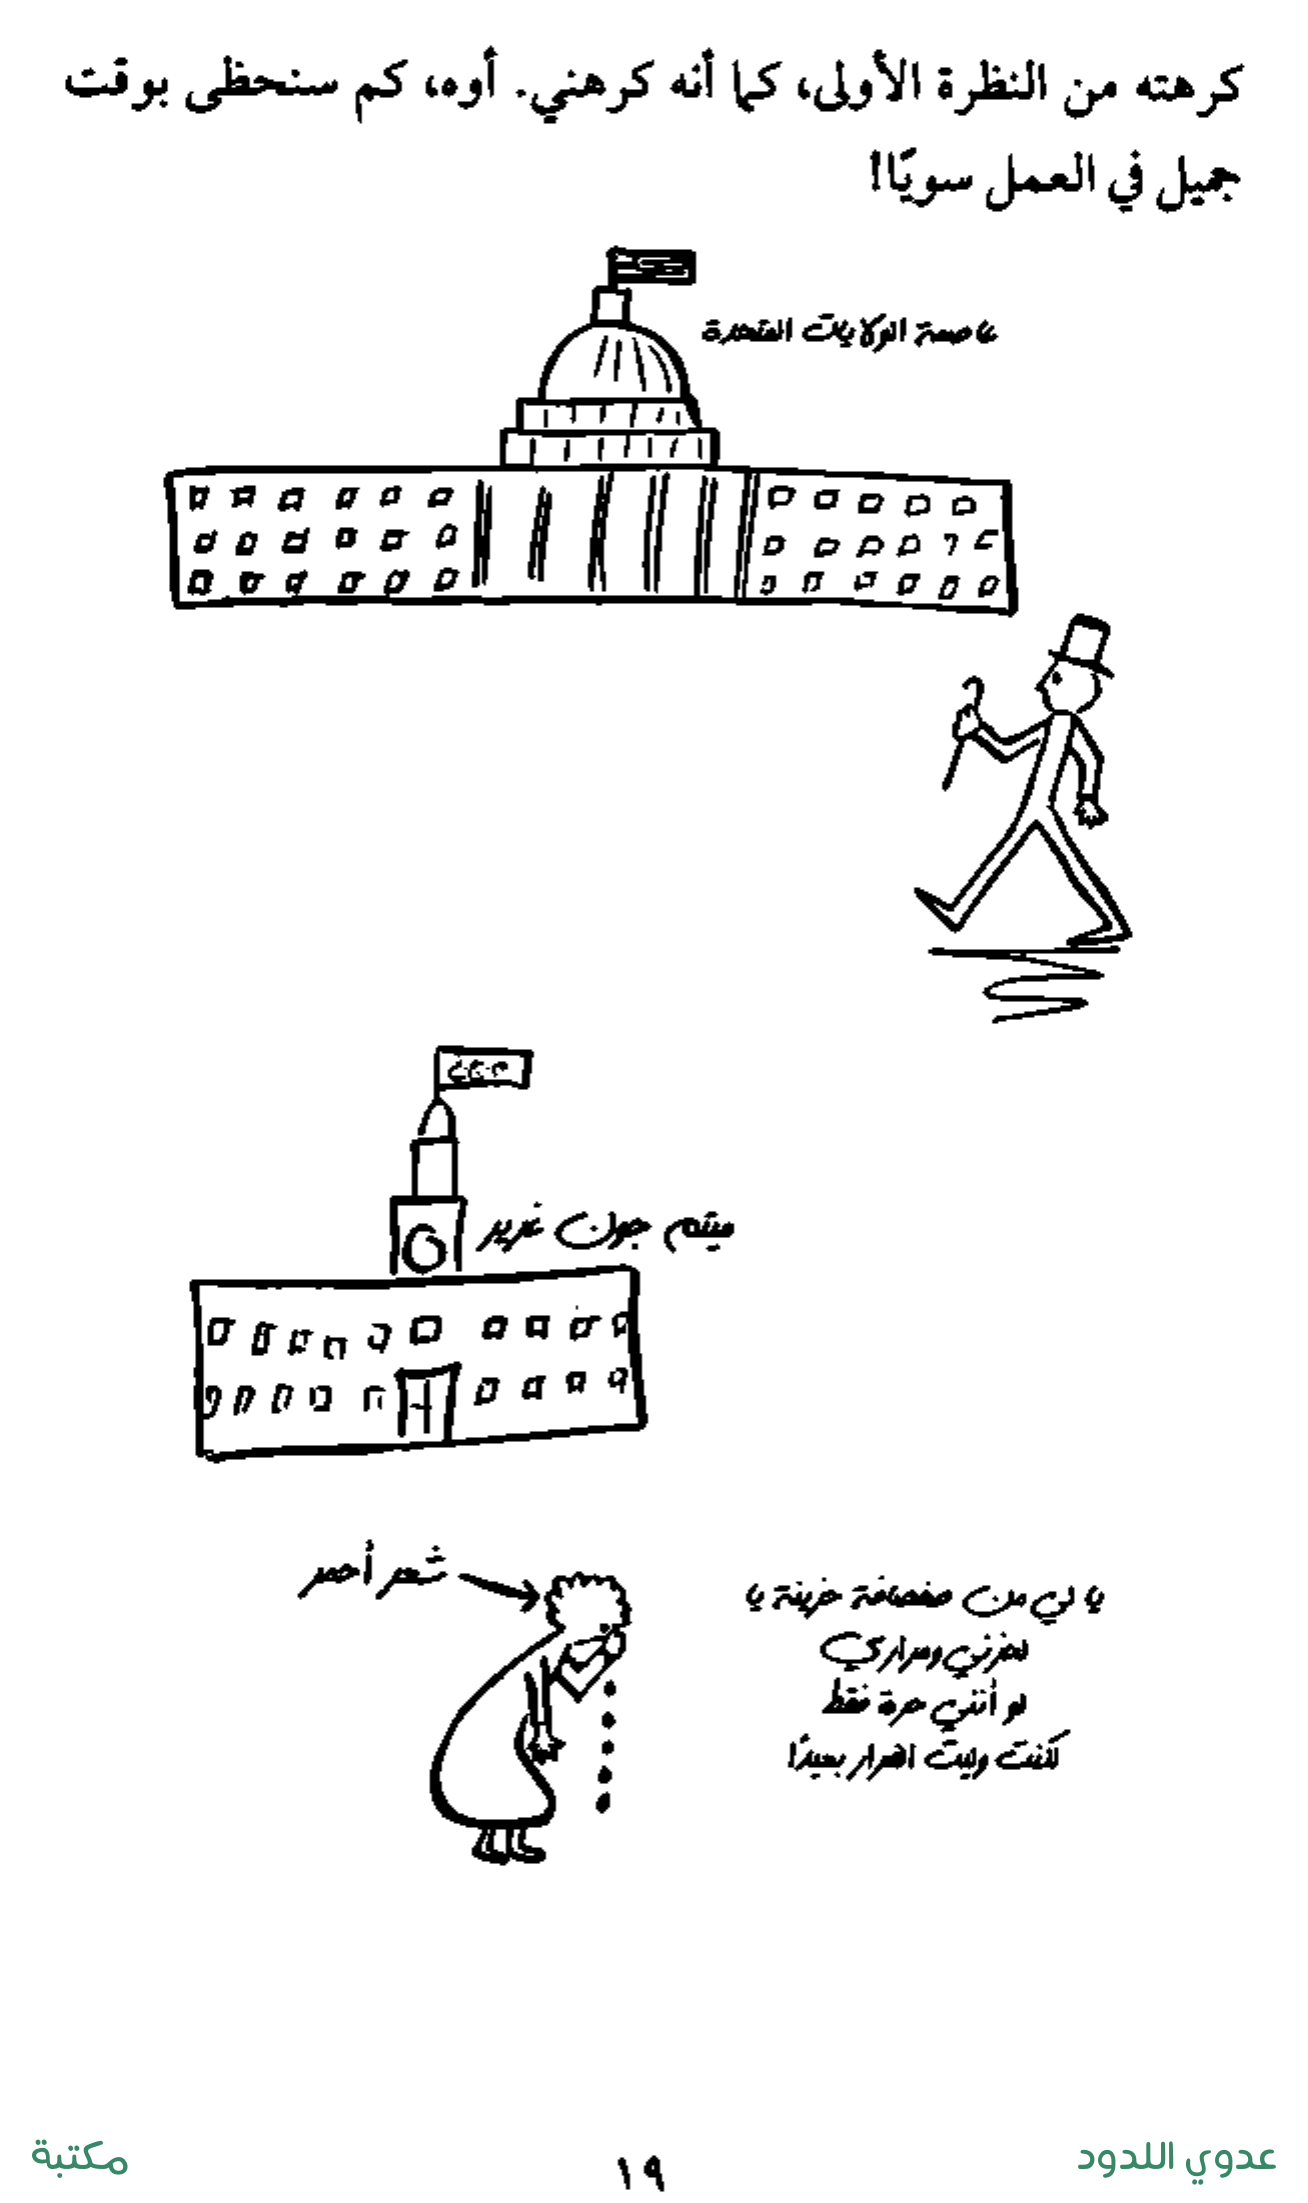 كرهته من النظرة الأولى، كما أنه كرهني. أوه، كم سنحظى بوقت
جميل في العمل سويًا!
عاصمة الولايات المتحدة
ميتم جون غرير
شعر أحمر
يا لي من صفصافة حزينة يا
لحزني ومراري
لو أنني حرة فقط
لكنت وليت الفرار بعيدًا
عدوي اللدود
١٩
مكتبة